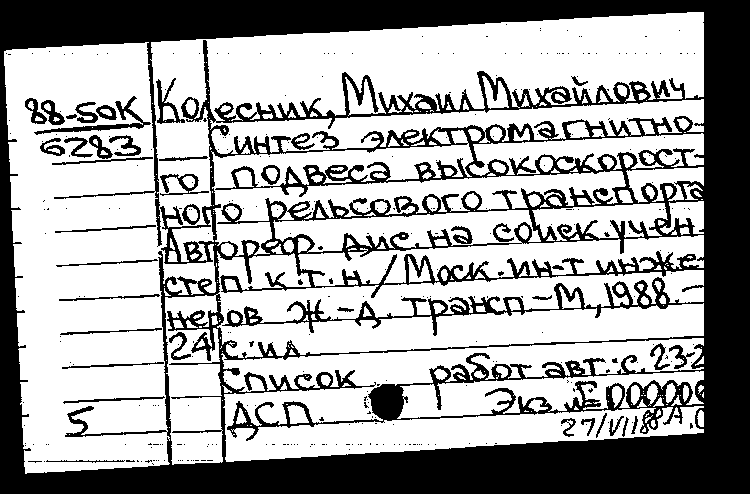 88-50К Колесник, Михаил Михайлович.
6283 Синтез электромагнитно-
го подвеса высокоскорост-
ного рельсового транспорта
Автореф. дис. на соиск. учен.
степ. к.т.н./Моск. ин-т инже-
неров ж.-д. трансп.-М., 1988.-
24 с.:ил.
Список работ авт.: с. 23-2
5 ДСП. Экз. №
27/VII88 А.